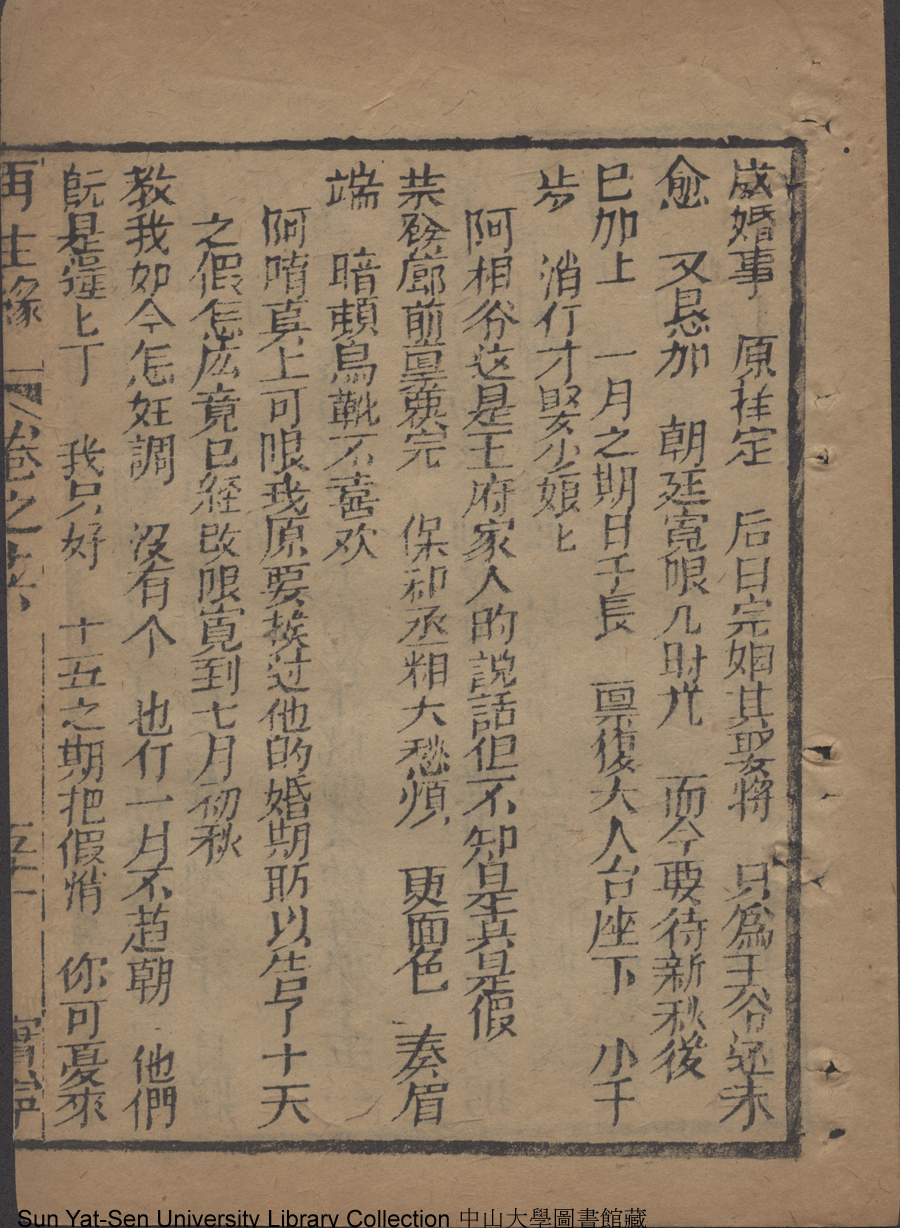 成婚事　原注定　后日完姻其娶將　只為王爷还未
愈　又恳加　朝廷寬限几时光　而今要待新秋後
巳加上　一月之期日子長　禀復大人台座下　小千
步　消行才娶少娘匕
阿相爷这是王府家人的說話但不知是真是假
禁發廊前稟完　保和丞相大愁煩　更面色　奏眉
端　暗頓烏靴不喜欢
阿唷真上可恨我原要挨过他的婚期所以告了十天
之假怎庅竟已經改限寬到七月初秋
教我如今怎好調　沒有个　也仃一月不趋朝　他們
既是匕丁　我只好　十五之期把假销　你可憂來
再生緣　卷之　五十　寳寧
Sun Yat-Sen University Library Collection 中山大學圖書館藏